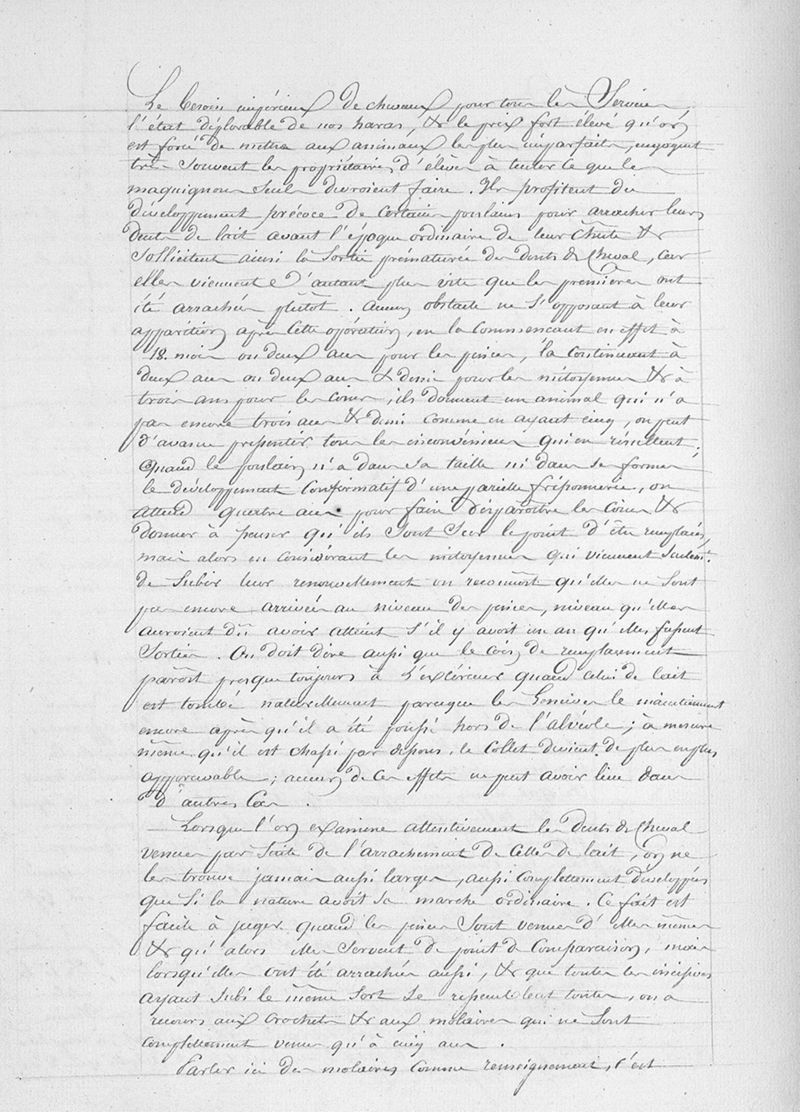 Le besoin impérieux de chevaux pour tous les Services
l'état déplorable de nos haras, & le prix fort élevé qu'on
est forcé de mettre aux animaux les plus imparfaits, engagent
très souvent les propriétaires d'élèves à tenter ce que les
maquignons seuls devroient faire. Ils profitent du
développement précoce de certains poulains pour arracher leurs
dents de lait avant l'époque ordinaire de leur chute &
sollicitent ainsi la sortie prematurée des dents de cheval, car
elles viennent d'autant plus vite que les premières ont
été arrachées plutôt. Aucun obstacle ne s'opposant à leur
apparition après cette opération, en la commencant en effet à
18. mois ou deux ans pour les pinces, la continuant à
deux ans ou deux ans & demi pour les mitoyennes & à
trois ans pour les coins, ils donnent un animal qui n'a
pas encore trois ans & demi comme en ayant cinq, on peut
d'avance présenter tous les inconvénients qui en résultent;
Quand le poulain n'a dans sa taille ni dans ses formes
le développement confirmatif d'une pareille friponnerie, on
attend quatre ans pour faire disparoître les coins &
donner à penser qu'ils sont sur le point d'être remplacés,
mais alors en considérant les mitoyennes qui viennent seulemt.
de subir leur renouvellement on reconnoit qu'elles ne sont
pas encore arrivées au niveau des pinces, niveau qu'elles
auroient dû avoir atteint s'il y avoit un an qu'elles fussent
sorties. On doit dire aussi que le coin de remplacement
paroît presque toujours à l'extérieur quand celui de lait
est tombé naturellement parceque les gencives le maintiennent
encore après qu'il a été poussé hors de l'alvéole; à mesure
même qu'il est chassé par dessous, le collet devient de plus en plus
appercevable; aucun de ces effets ne peut avoir lieu dans
d'autres cas.
Lorsque l'on examine attentivement les dents de cheval
venues par suite de l'arrachement de celles de lait, on ne
les trouve jamais aussi larges, aussi complettement développées
que si la nature avoit sa marche ordinaire. Ce fait est
facile à juger quand les pinces sont venues d'elles mêmes
& qu'alors elles servent de point de comparaison, mais
lorsqu'elles ont été arrachées aussi, & que toutes les incisives
ayant subi le même sort se ressemblent toutes, on a
recours aux crochets & aux molaires qui ne sont
complettement venues qu'à cinq ans.
Parler ici des molaires comme renseignement, c'est